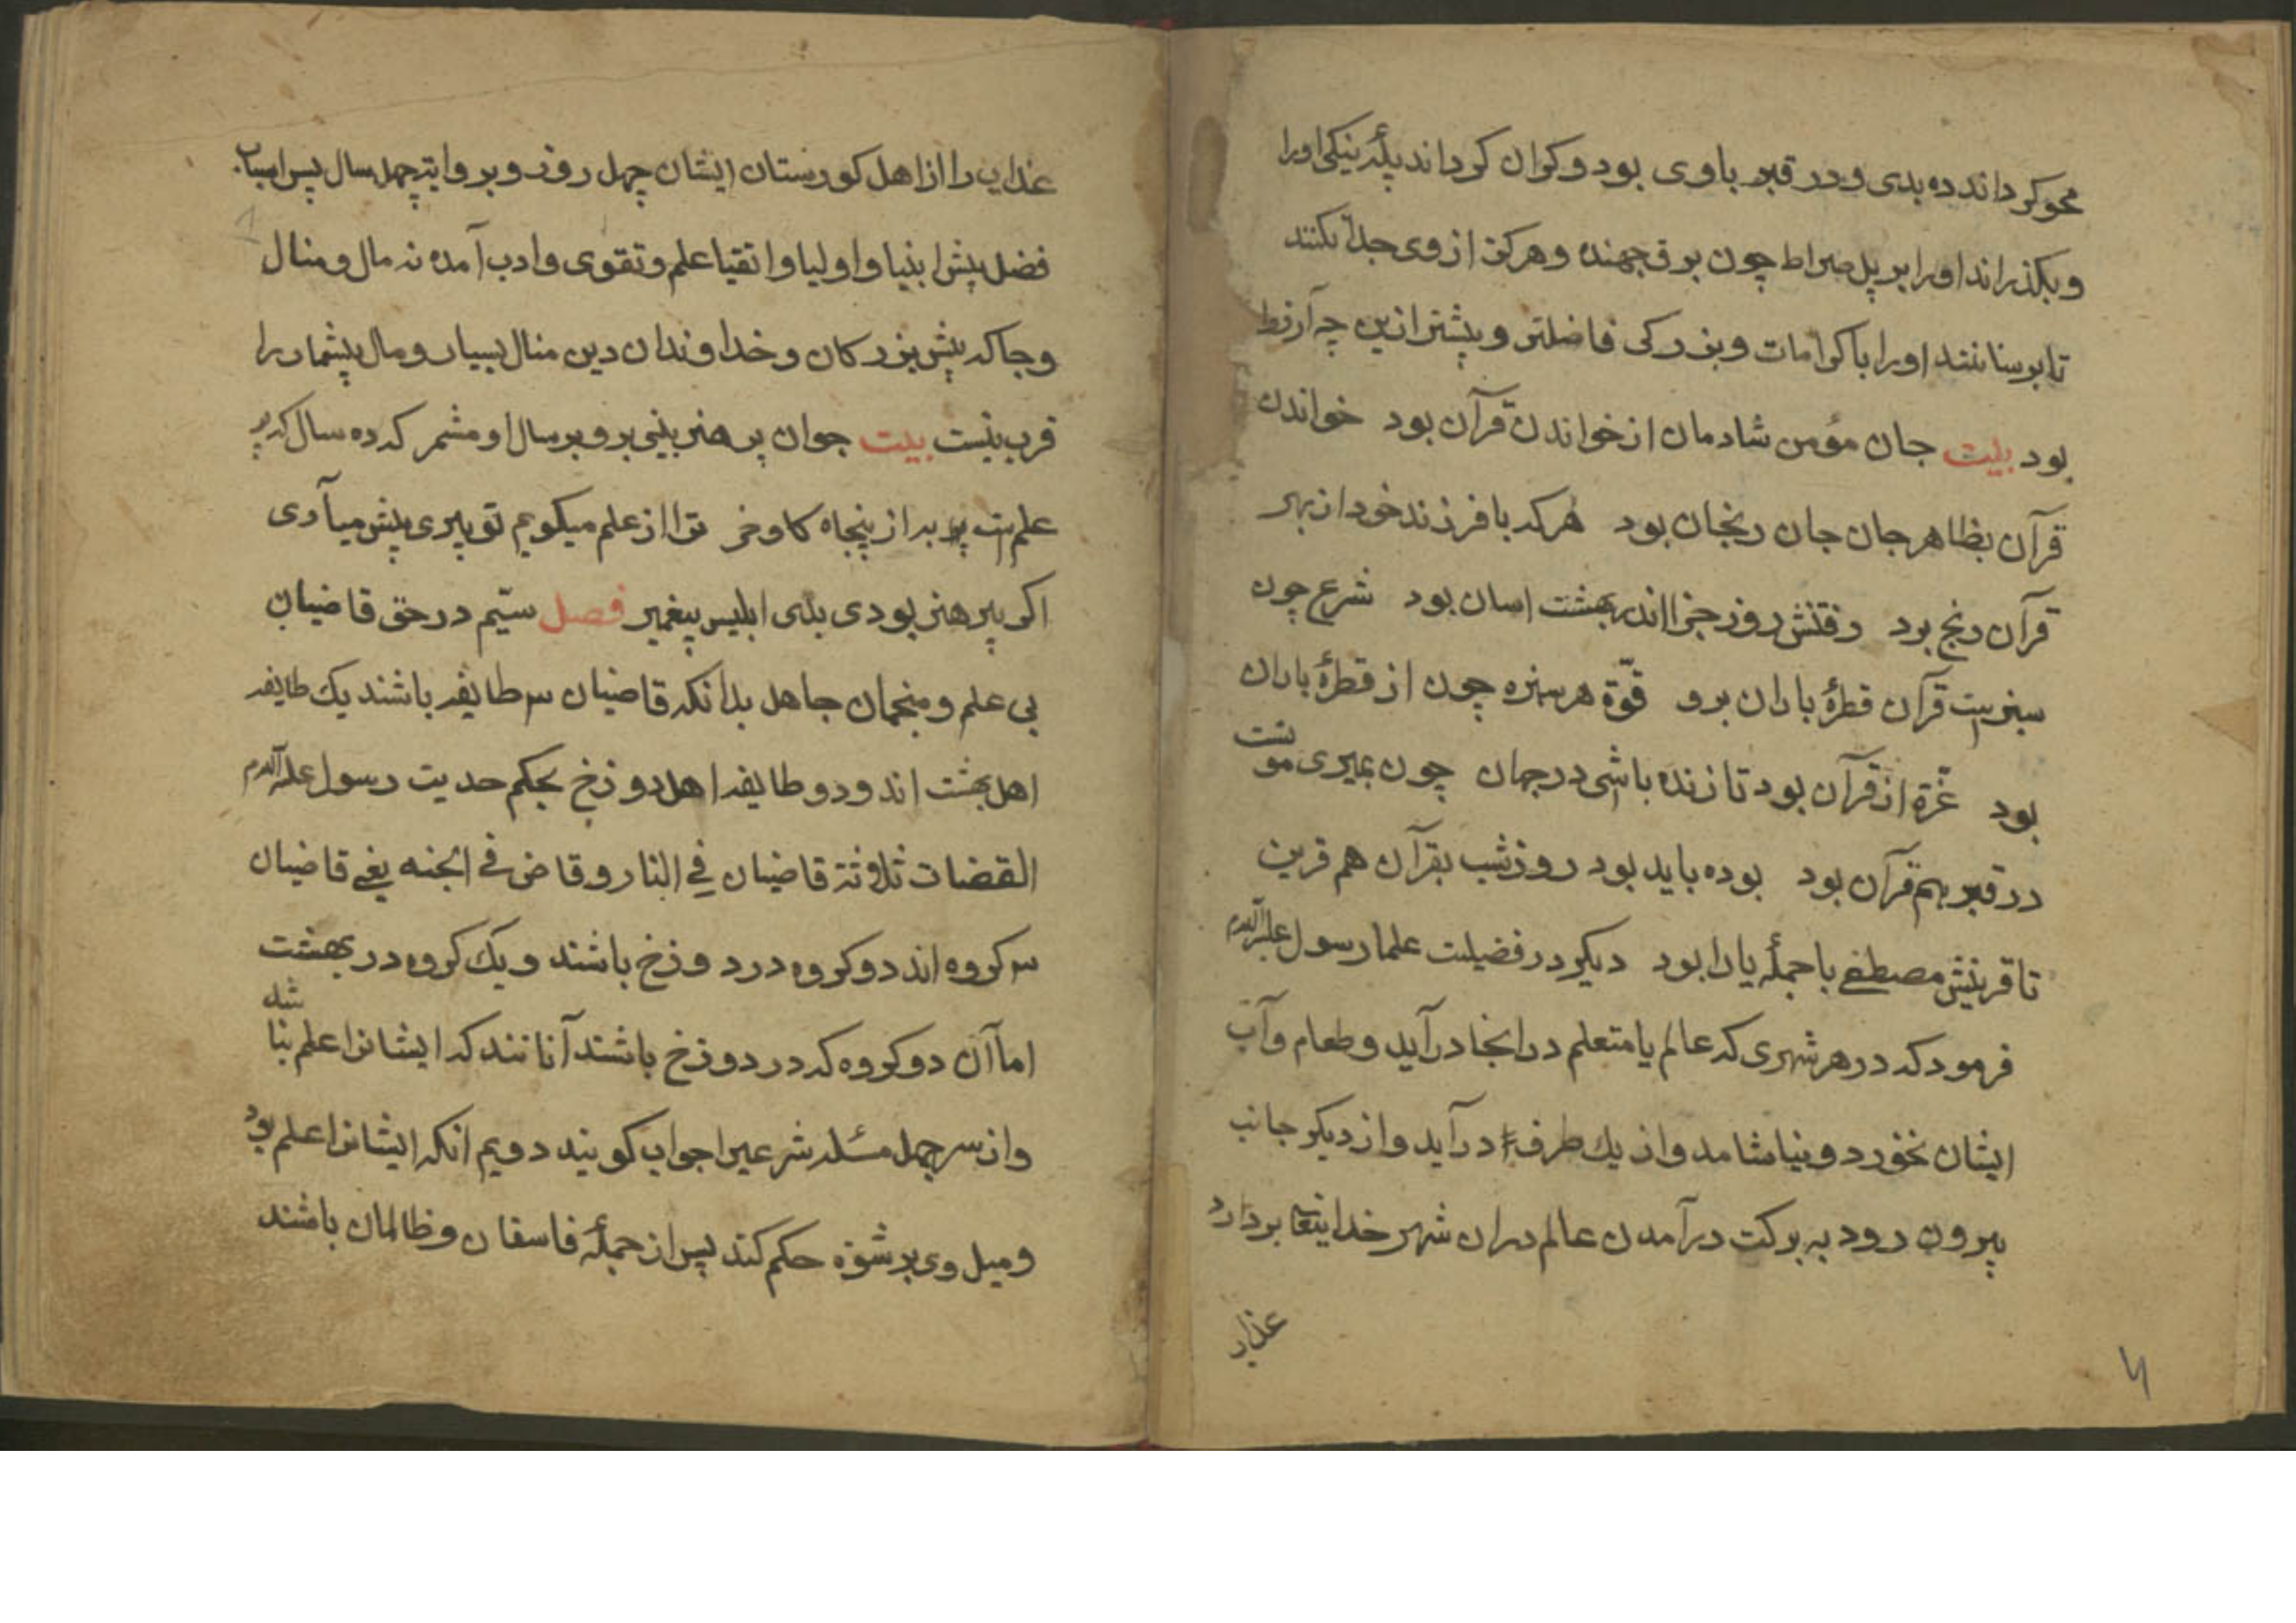 محو کرداند ده بدی و در قبر باوی بود و کران کرداند پلۀ نیکی اورا
و بکذراند اورا بر پل صراط چون برق جهنده و هرکز از وی جدا نکنند
تا برسانند اورا با کرامات و بزرکی فاضلتر و پیشتر ازین چه آرزو
بود بیت جان مؤمن شادمان از خواندن قرآن بود خواندن
قرآن بظاهر جان جان رنجان بود هرکه با فرزند خود از بهر
قرآن رنج برد رفتنش روز جزا اندر بهشت اسان بود شرع چون
سبزیست قرآن قطرۀ باران برو قوّة هر سبزه چون از قطرۀ باران
بود غرّة از قرآن بود تا زنده باشی در جهان چون بمیری مونست
در قبر هم قرآن بود بوده باید بود روز شب بقرآن هم قرین
تا قرینش مصطفی با جملۀ یارا بود دیکر در فضیلت علما رسول علیه السلام
فرمود که در هر شهری که عالم یا متعلم در انجا در آید و طعام و آب
ایشان نخورد و نیاشامد و از یك طرف در آید و از دیکر جانب
بیرون رود به برکت در آمدن عالم دران شهر خدایتعا بردارد
عذاب
عذاب را از اهل کورستان ایشان چهل روز و بروایتچهل سال پس
فضل پیش انبیا و اولیا و اتقیا علم و تقوی و ادب آمده نه مال و منال
و جاکه پیش بزرکان و خداوندان دین منال بسیار و مال بیشمار را
قرب نیست بیت جوان پر هنر بینی برو بر سال او مشمر که ده ساله که پر
علمست به از پنجاه کاو خر ترا از علم میکویم تو پیری پیش میآری
اکر پیر هنر بودی بدی ابلیس پیغمبر فصل سیّم در حق قاضیان
بی علم و منجمان جاهل بدانکه قاضیان سه طایفه باشند یك طایفه
اهل بهشت اند و دو طایفه اهل دوزخ بحکم حدیث رسول علیه السلام
القضات ثلاثة قاضیان في النار و قاض في الجنه یعنی قاضیان
سه کروه اند دو کروه در دوزخ باشند و یك کروه در بهشت
اما آن دو کروه که در دوزخ باشند آنانند که ایشانرا علم نباشد
و از سر جهل مسئله شرعیرا جواب کویند دویم انکه ایشانرا علم بود
و میل وی برشوة حکم کند پس از جملۀ فاسقان و ظالمان باشند